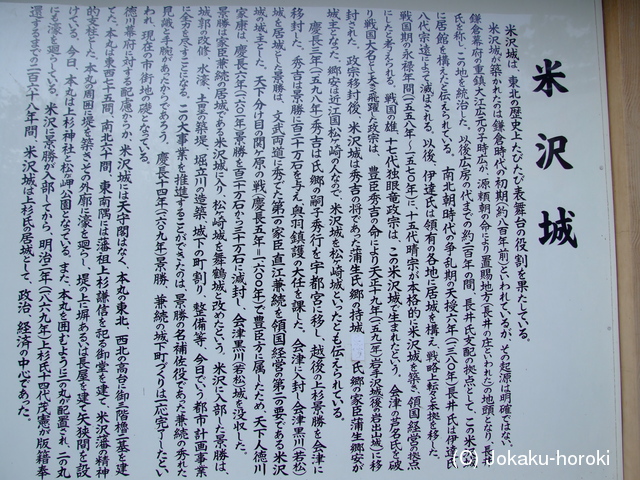 米沢城
米沢城は、東北の歴史上たびたび表舞台の役割を果たしている。
米沢城が築かれたのは鎌倉時代の初期(約八百年前)といわれているが、その起源は明確ではない。
鎌倉幕府の重臣大江広元の子時広が、源頼朝の命により置賜地方(長井の庄といわれた)の地頭となり、長井
氏を称し、この地を統治した。以後広房の代までの約二百年の間、長井氏支配の拠点として、この米沢
に居館を構えたと伝えられている。南北朝時代の争乱期の天授六年(一三八〇年)長井氏は伊達氏
八代宗遠によって滅ぼされる。以後、伊達氏は領有の各地に居城を構え、戦略上転々本拠を移した。
戦国期の永禄年間(一五五八年~一五七〇年)に、十五代晴宗が本格的に米沢城を築き、領国経営の拠点
にしたと考えられる。戦国の雄、十七代独眼竜政宗は、この米沢城で生まれたという。会津の芦名氏を破
り戦国大名として大き飛躍した政宗は、豊臣秀吉の命により天正十九年(一五九一年)岩手沢城(後の岩出山城)に移
封された。政宗移封後、米沢城は秀吉の将であった蒲生氏郷の持城、 氏郷の家臣蒲生郷安が
城主となった。郷安は近江国松ヶ崎の人なので、米沢城を松ヶ崎城といったとも伝えられている。
慶長三年(一五九八年)秀吉は氏郷の嗣子秀行を宇都宮に移し、越後の上杉景勝を会津に
移封した。秀吉は景勝に百二十万石を与え奥羽鎮護の大任を課した。会津に入封し会津黒川(若松)
城を居城とした景勝は、文武両道に秀でた第一の家臣直江兼続を領国経営の第二の要である米沢
城の城主とした。天下分け目の関ヶ原の戦(慶長五年=一六〇〇年)で豊臣方に属したため、天下人徳川
家康は、慶長六年(一六〇一年)景勝を百二十万石から三十万石に減封し、会津黒川(若松)城を没収した。
景勝は家臣兼続の居城である米沢城に入り、松ヶ崎城を舞鶴城と改めたという。米沢に入部した景勝は、
城郭の改修、水濠、土塁の築堤、堀立川の造築、城下の町割り、整備等、今日でいう都市計画事業
に全力を尽すことになる。この大事業を推進することができたのは、景勝の名補佐役であった兼続の秀れた
見識と手腕があったからであろう。慶長十四年(一六〇九年)景勝、兼続の城下町づくりは一応完了したとい
われ、現在の市街地の礎となっている。
徳川幕府に対する配慮からか、米沢城には天守閣はなく、本丸の東北、西北の高台に御三階櫓二基を建
てた。本丸は東西七十五間、南北六十間、東南隅には藩祖上杉謙信を祀る御堂を建て、米沢藩の精神
的支柱とした。本丸の周囲に堤を築きその外郭に濠を廻らし、堤の上に塀あるいは長屋を建て矢狭間を設
けている。今日、本丸は上杉神社と松が岬公園となっている。また、本丸を囲むように二の丸が配置され、二の丸
にも濠を廻らしている。米沢に景勝が入部してから、明治二年(一八六九年)上杉氏十四代茂憲が版籍奉
還するまでの二百六十八年間、米沢城は上杉氏の居城として、政治、経済の中心であった。
(C) Jokaku-horoki